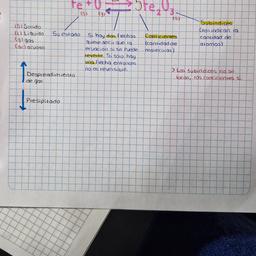 Fe + O ⇌ 5Fe₂O₃
(s) (g) (s)
(s) Solido
(L) Liquido
(g) gas
(ac) acuoso
Su estado
Si hay dos flechas
quiere decir que la
reacción si se puede
revertir. Si solo hay
una flecha entonces
no es reversible.
Coeficientes
(cantidad de
moleculas)
Subindices
(nos indican la
cantidad de
atomos)
↑ Desprendimiento
de gas
↓ Presipitado
> Los subindices no se
tocan, los coeficientes si.